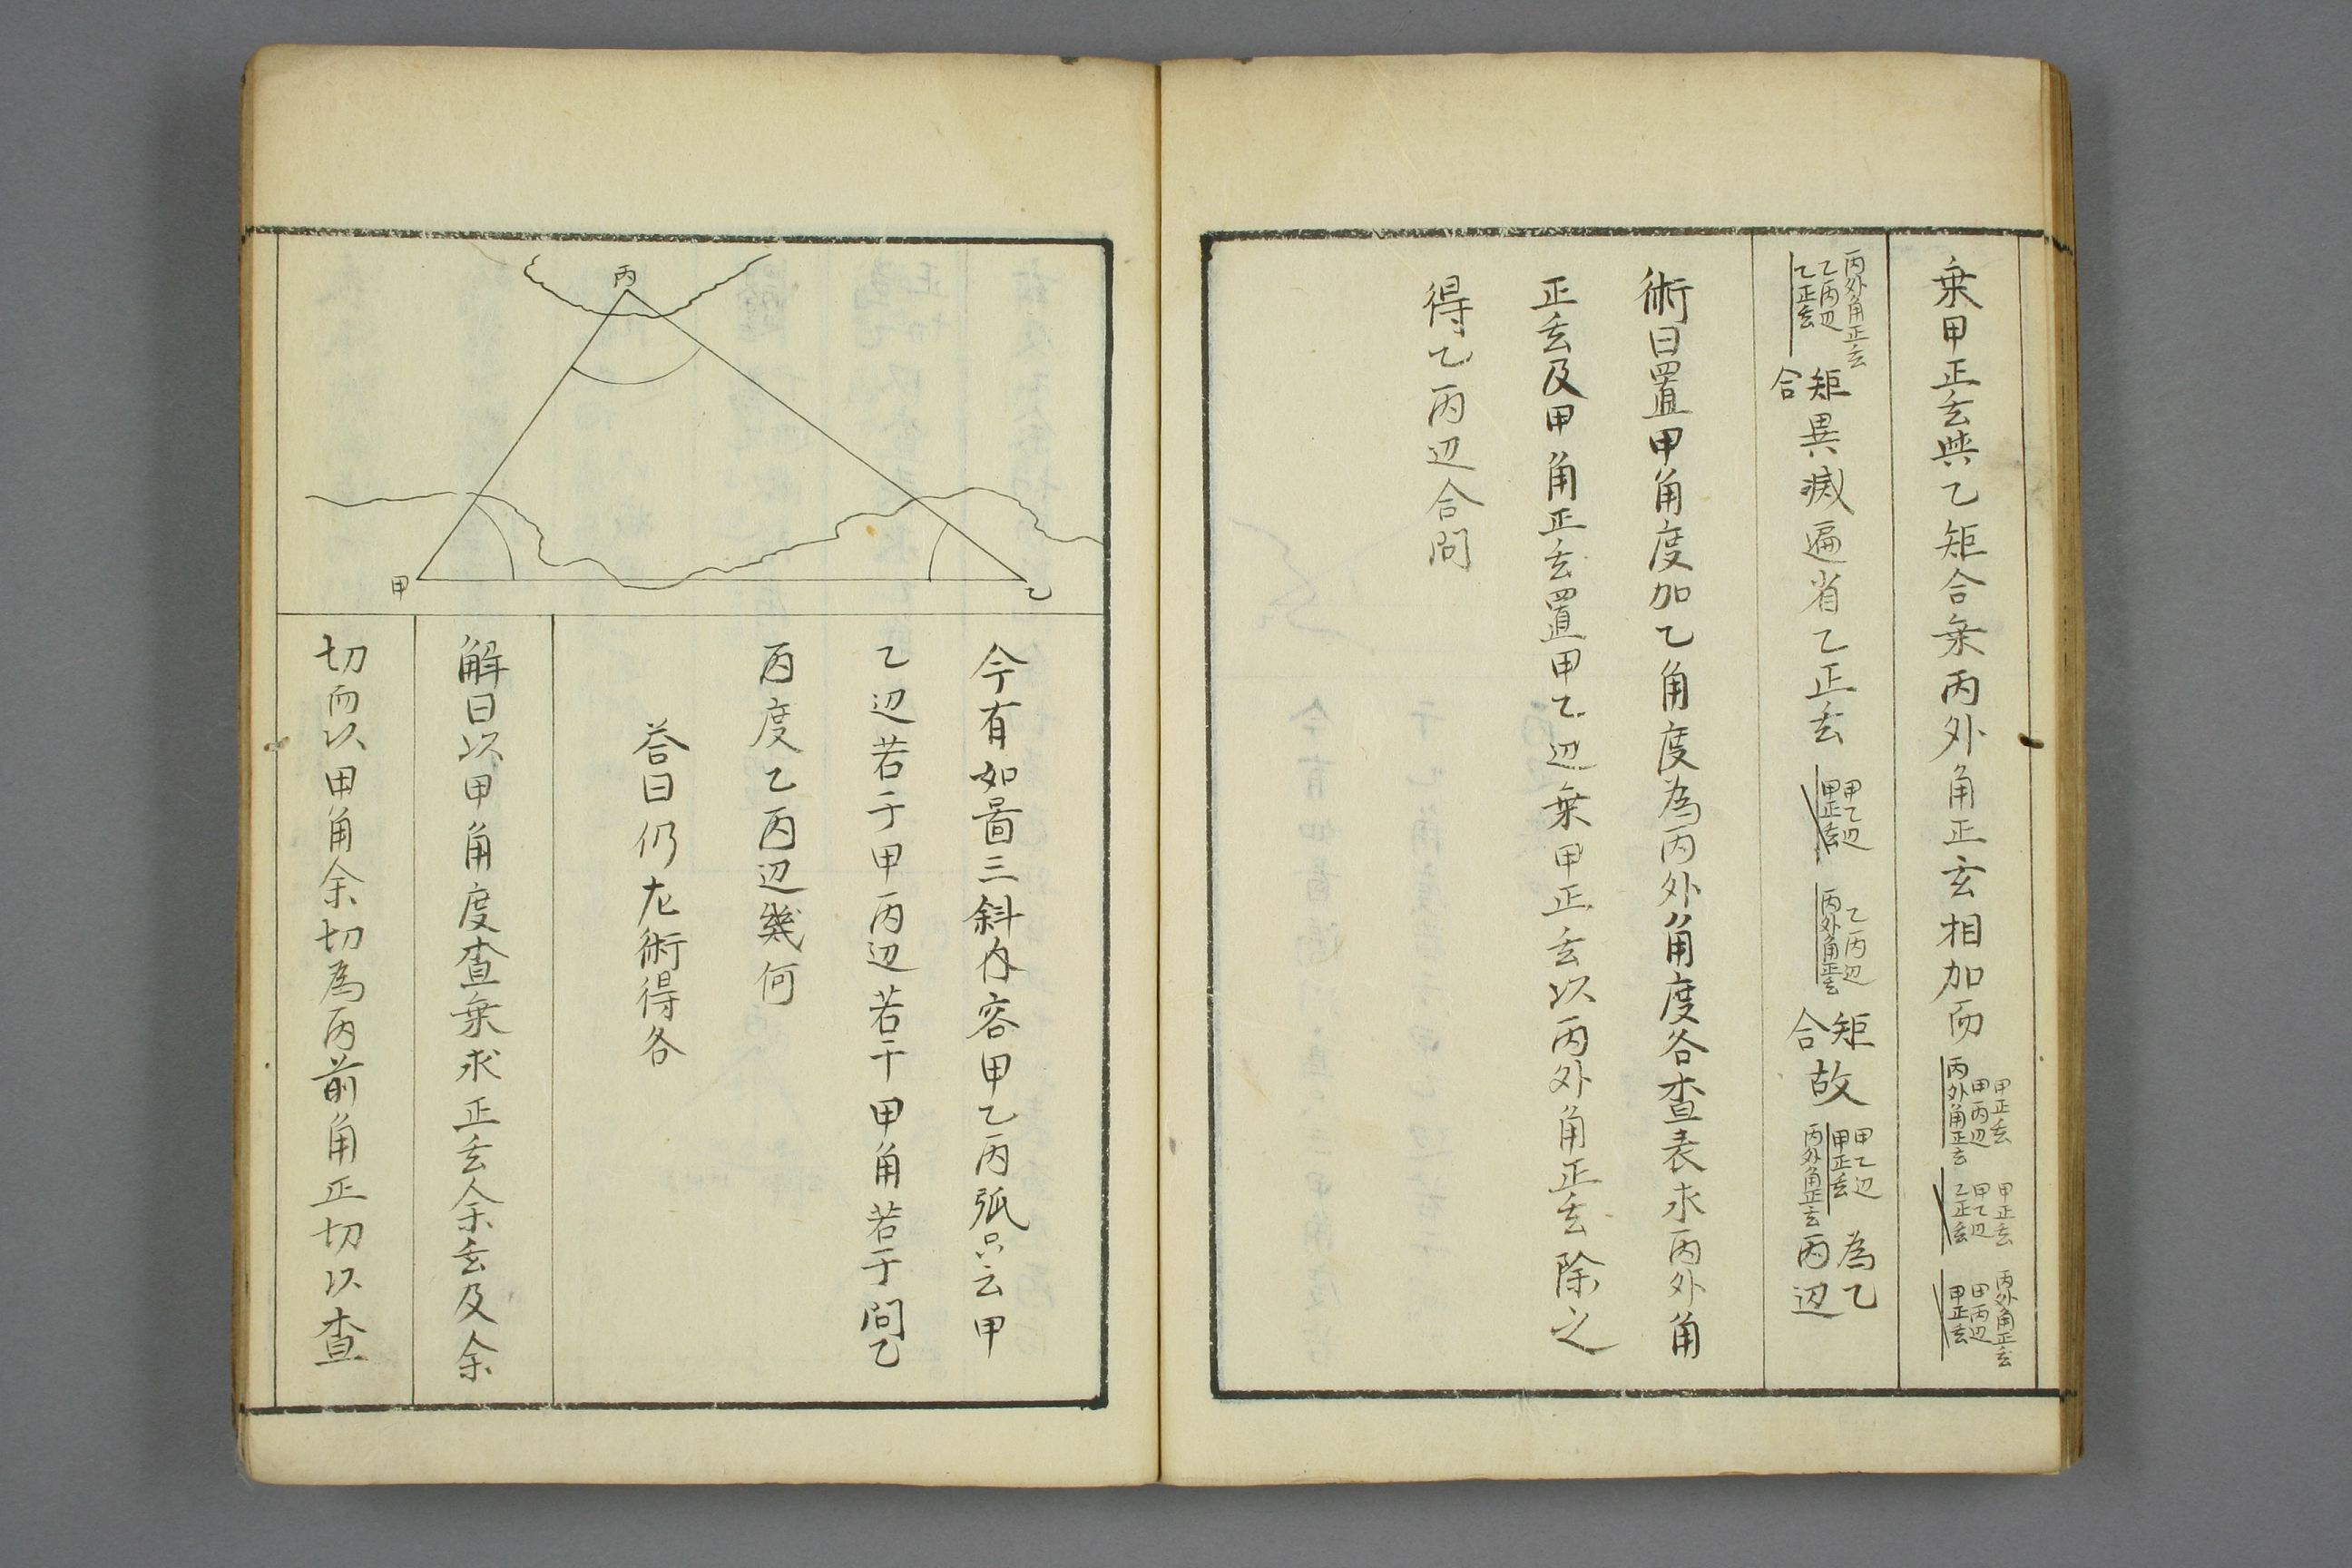 乗甲正玄與乙矩合乗丙外角正玄相加而
甲正玄
甲丙辺
丙外角正玄
甲正玄
甲乙辺
乙正玄
丙外角正玄
甲丙辺
甲正玄
丙外角正玄
乙丙辺
乙正玄
矩合異减遍省乙正玄
甲乙辺
甲正玄
乙丙辺
丙外角正玄
矩合故
甲乙辺
甲正玄
丙外角正玄
為乙丙辺
術曰置甲角度加乙角度為丙外角度各査表求丙外角
正玄及甲角正玄置甲乙辺乗甲正玄以丙外角正玄除之
得乙丙辺合問
丙
甲
乙
今有如啚三斜内容甲乙丙弧只云甲
乙辺若于甲丙辺若干甲角若于問乙
丙度乙丙辺幾何
荅曰仍左術得各
解曰以甲角度査乗求正玄余玄及余
切而以甲角余切為丙前角正切以査